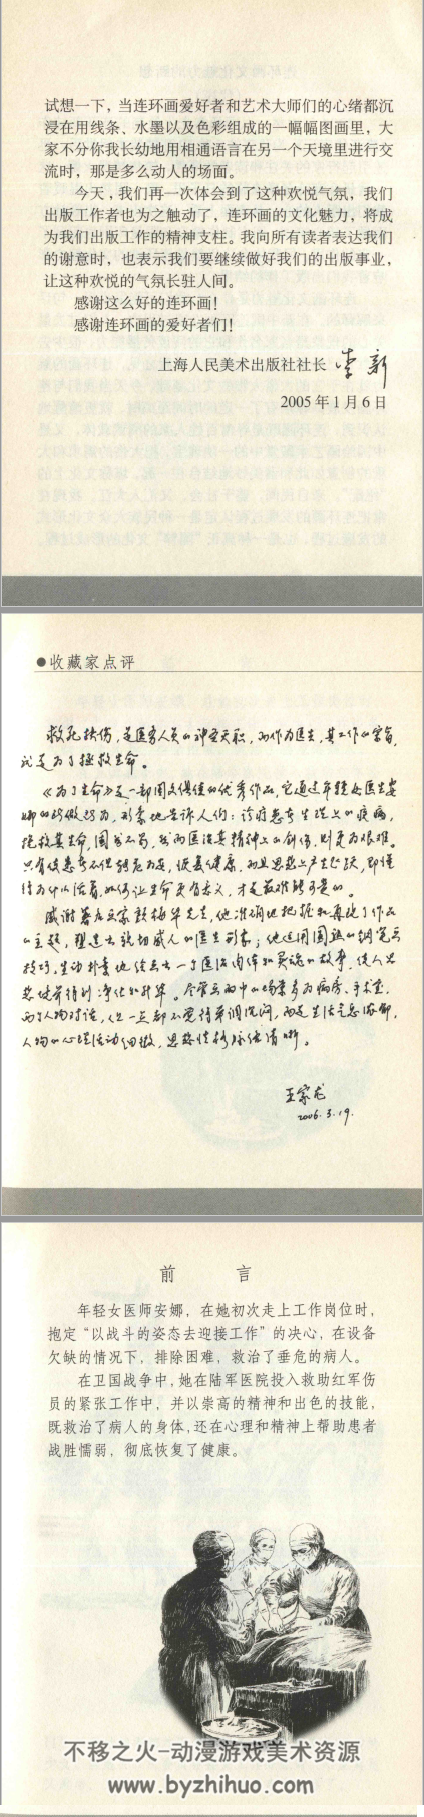 试想一下，当连环画爱好者和艺术大师们的心绪都沉
浸在用线条、水墨以及色彩组成的一幅幅图画里，大
家不分你我长幼地用相通语言在另一个天境里进行交
流时，那是多么动人的场面。
今天，我们再一次体会到了这种欢悦气氛，我们
出版工作者也为之触动了，连环画的文化魅力，将成
为我们出版工作的精神支柱。我向所有读者表达我们
的谢意时，也表示我们要继续做好我们的出版事业，
让这种欢悦的气氛长驻人间。
感谢这么好的连环画！
感谢连环画的爱好者们！
上海人民美术出版社社长 李新
2005年1月6日
●收藏家点评
救死扶伤，是医务人员的神圣天职，而作为医生，其工作的宗旨，
就是为了拯救生命。
《为了生命》是一部图文俱佳的优秀作品，它通过年轻女医生安
娜的所做所为，形象地告诉人们：诊疗患者生理上的疾病，
挽救其生命，固然不易，然而医治其精神上的创伤，则更为艰难。
只有使患者不但转危为安，恢复健康，而且思想上产生飞跃，即懂
得为什么活着，如何让生命更有意义，才是最难能可贵的。
感谢著名画家颜梅华先生，他准确地把握和再现了作品
的主题，塑造出亲切感人的医生形象；他运用圆熟的钢笔画
技巧，生动朴素地绘画出一个医治肉体和灵魂的故事，使人思
想境界得到净化和升华。尽管画面中的场景多为病房、手术室，
两个人物对话，但一点都不觉得单调沉闷，而是生活气息浓郁，
人物的心理活动细微，思想情感脉络清晰。
王家龙
2006.3.19.
前 言
年轻女医师安娜，在她初次走上工作岗位时，
抱定“以战斗的姿态去迎接工作”的决心，在设备
欠缺的情况下，排除困难，救治了垂危的病人。
在卫国战争中，她在陆军医院投入救助红军伤
员的紧张工作中，并以崇高的精神和出色的技能，
既救治了病人的身体，还在心理和精神上帮助患者
战胜懦弱，彻底恢复了健康。
不移之火-动漫游戏美术资源
www.byzhihuo.com